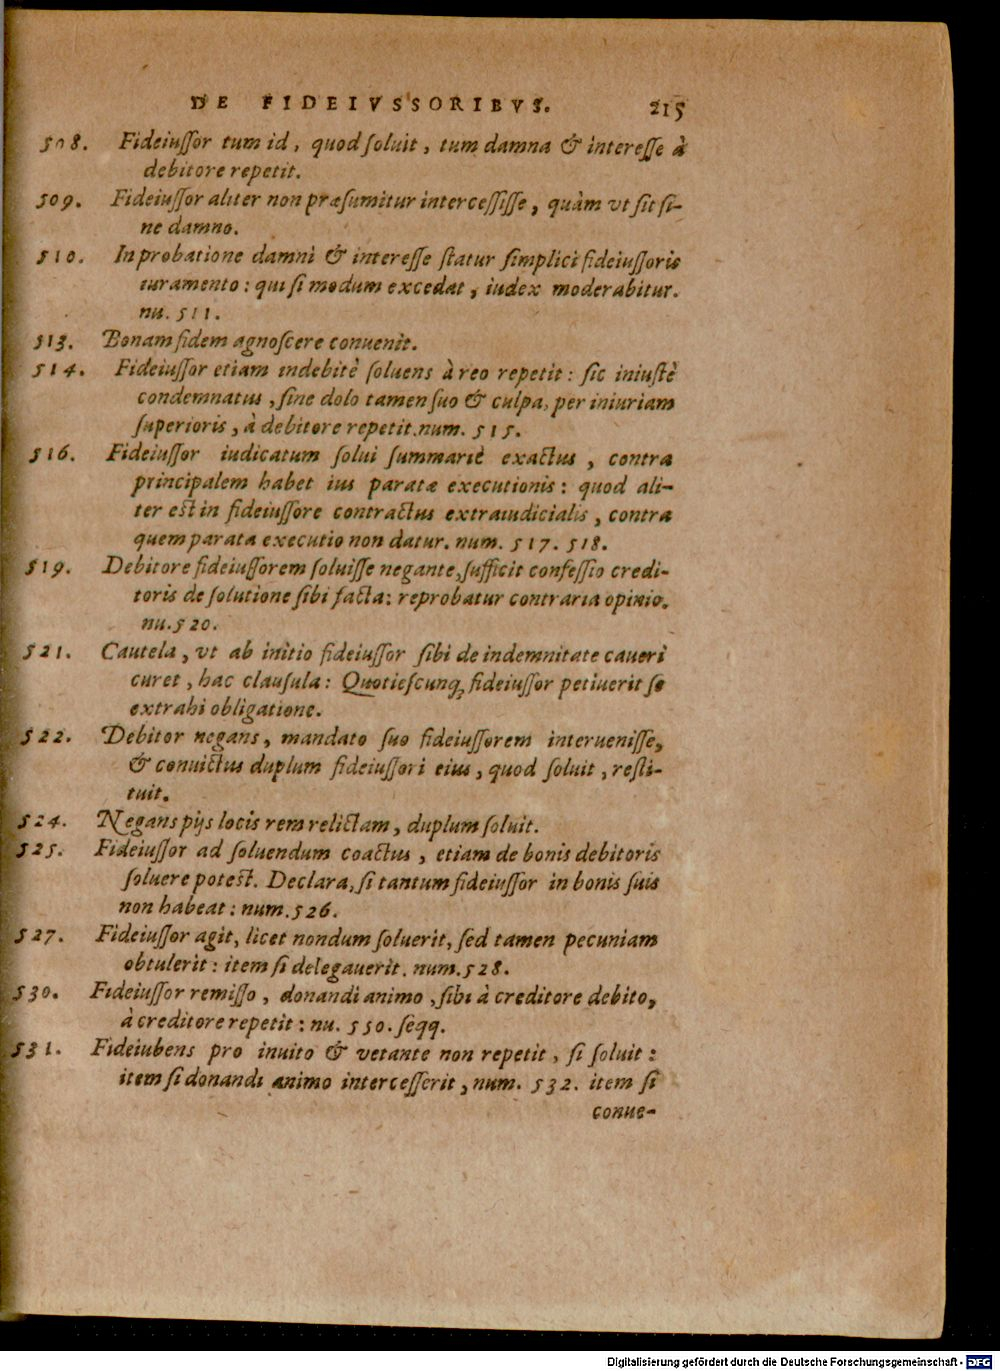 DE FIDEIVSSORIBVS. 215
508. Fideiuſſor tum id, quod ſoluit, tum damna & intereſſe à
debitore repetit.
509. Fideiuſſor aliter non præſumitur interceſſiſſe, quàm vt ſit ſi-
ne damno.
510. In probatione damni & intereſſe ſtatur ſimplici fideiuſſoris
iuramento: qui ſi modum excedat, iudex moderabitur.
nu. 511.
513. Bonam fidem agnoſcere conuenit.
514. Fideiuſſor etiam indebitè ſoluens à reo repetit: ſic iniuſtè
condemnatus, ſine dolo tamen ſuo & culpa, per iniuriam
ſuperioris, à debitore repetit. num. 515.
516. Fideiuſſor iudicatum ſolui ſummariè exactus, contra
principalem habet ius paratæ executionis: quod ali-
ter eſt in fideiuſſore contractus extraiudicialis, contra
quem parata executio non datur. num. 517. 518.
519. Debitore fideiuſſorem ſoluiſſe negante, ſufficit confeſſio credi-
toris de ſolutione ſibi facta: reprobatur contraria opinio.
nu. 520.
521. Cautela, vt ab initio fideiuſſor ſibi de indemnitate caueri
curet, hac clauſula: Quotieſcunq; fideiuſſor petiuerit ſe
extrahi obligatione.
522. Debitor negans, mandato ſuo fideiuſſorem interueniſſe,
& conuictus duplum fideiuſſori eius, quod ſoluit, reſti-
tuit.
524. Negans pijs locis rem relictam, duplum ſoluit.
525. Fideiuſſor ad ſoluendum coactus, etiam de bonis debitoris
ſoluere poteſt. Declara, ſi tantum fideiuſſor in bonis ſuis
non habeat: num. 526.
527. Fideiuſſor agit, licet nondum ſoluerit, ſed tamen pecuniam
obtulerit: item ſi delegauerit. num. 528.
530. Fideiuſſor remiſſo, donandi animo, ſibi à creditore debito,
à creditore repetit: nu. 550. ſeqq.
531. Fideiubens pro inuito & vetante non repetit, ſi ſoluit:
item ſi donandi animo interceſſerit, num. 532. item ſi
conue-
Digitalisierung gefördert durch die Deutsche Forschungsgemeinschaft - DFG